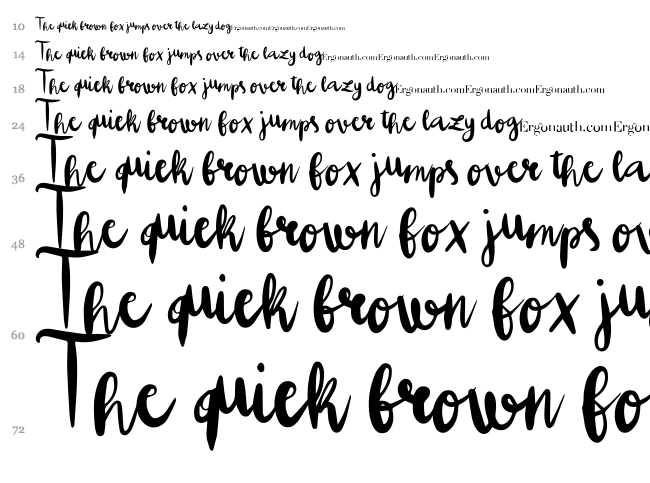 10 The quick brown fox jumps over the lazy dogErgonauth.comErgonauth.comErgonauth.com
14 The quick brown fox jumps over the lazy dogErgonauth.comErgonauth.comErgonauth.com
18 The quick brown fox jumps over the lazy dogErgonauth.comErgonauth.comErgonauth.com
24 The quick brown fox jumps over the lazy dogErgonauth.comErgon
36 The quick brown fox jumps over the la
48 The quick brown fox jumps ov
60 The quick brown fox ju
72 The quick brown fo